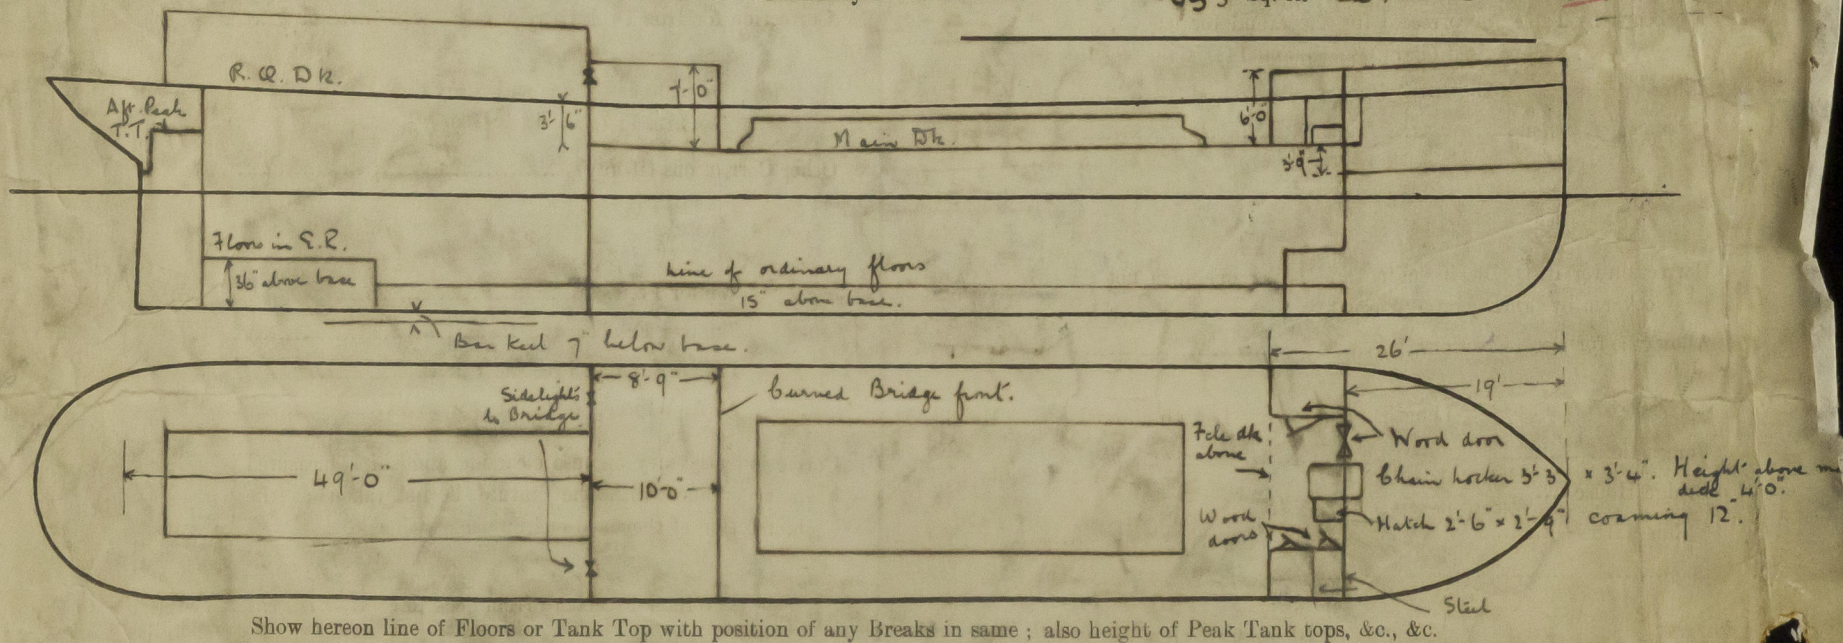 R. Q. Dk.
Aft. Peak
T.T.
3'-6"
7'-0"
Main Dk.
6'-0"
3'-9"
Floors in E.R.
36" above base
Line of ordinary floors
15" above base.
Bar Keel 7" below base.
26'
19'
8'-9"
Curved Bridge front.
Sidelights
to Bridge
49'-0"
10'-0"
Fcle dk
above
Wood door
Chain Locker 3'-3" × 3'-4". Height above
deck 4'-0".
Hatch 2'-6" × 2'-9" coaming 12".
Wood
doors
Steel
Show hereon line of Floors or Tank Top with position of any Breaks in same ; also height of Peak Tank tops, &c., &c.